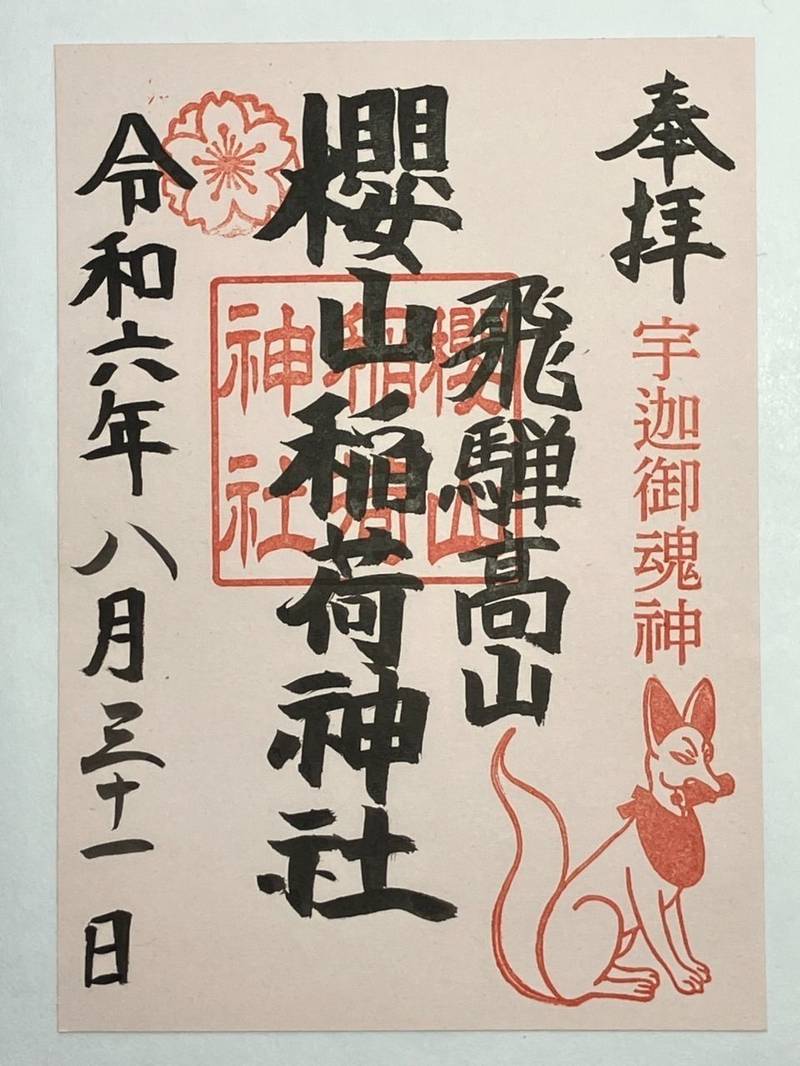 奉拝
宇迦御魂神
飛騨高山
櫻山稲荷神社
櫻山
稲荷
神社
令和六年八月三十一日